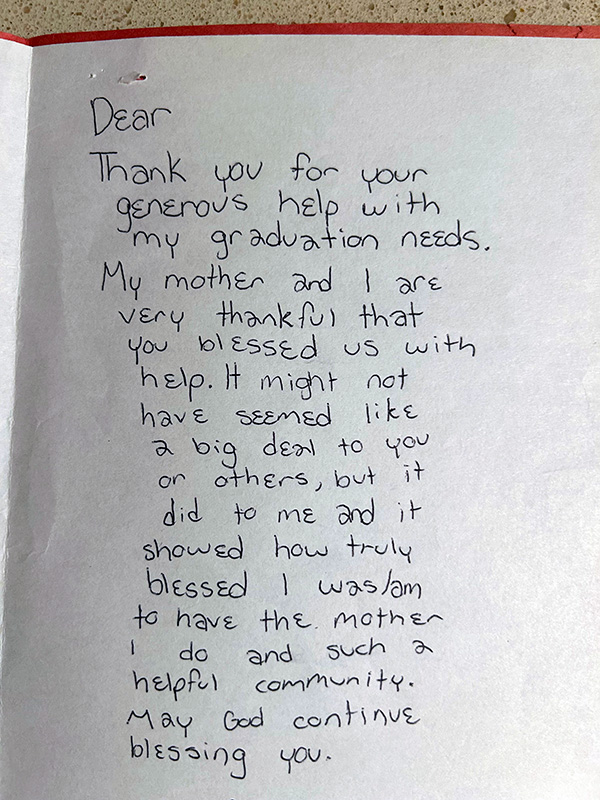 Dear
Thank you for your
generous help with
my graduation needs.
My mother and I are
very thankful that
you blessed us with
help. It might not
have seemed like
a big deal to you
or others, but it
did to me and it
showed how truly
blessed I was/am
to have the mother
I do and such a
helpful community.
May God continue
blessing you.